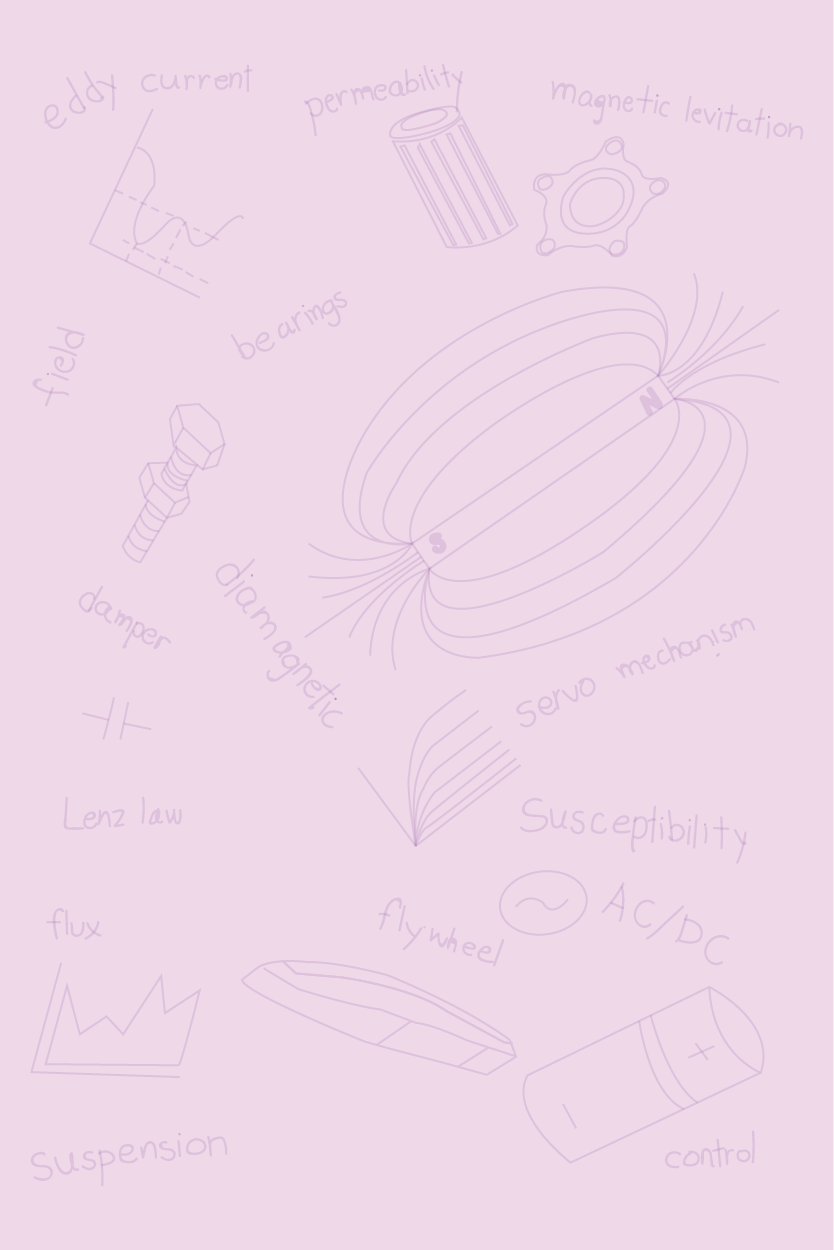 eddy current
permeability
magnetic levitation
bearings
field
N
S
diamagnetic
damper
servo mechanism
Lenz law
Susceptibility
flux
flywheel
AC/DC
+
-
suspension
control